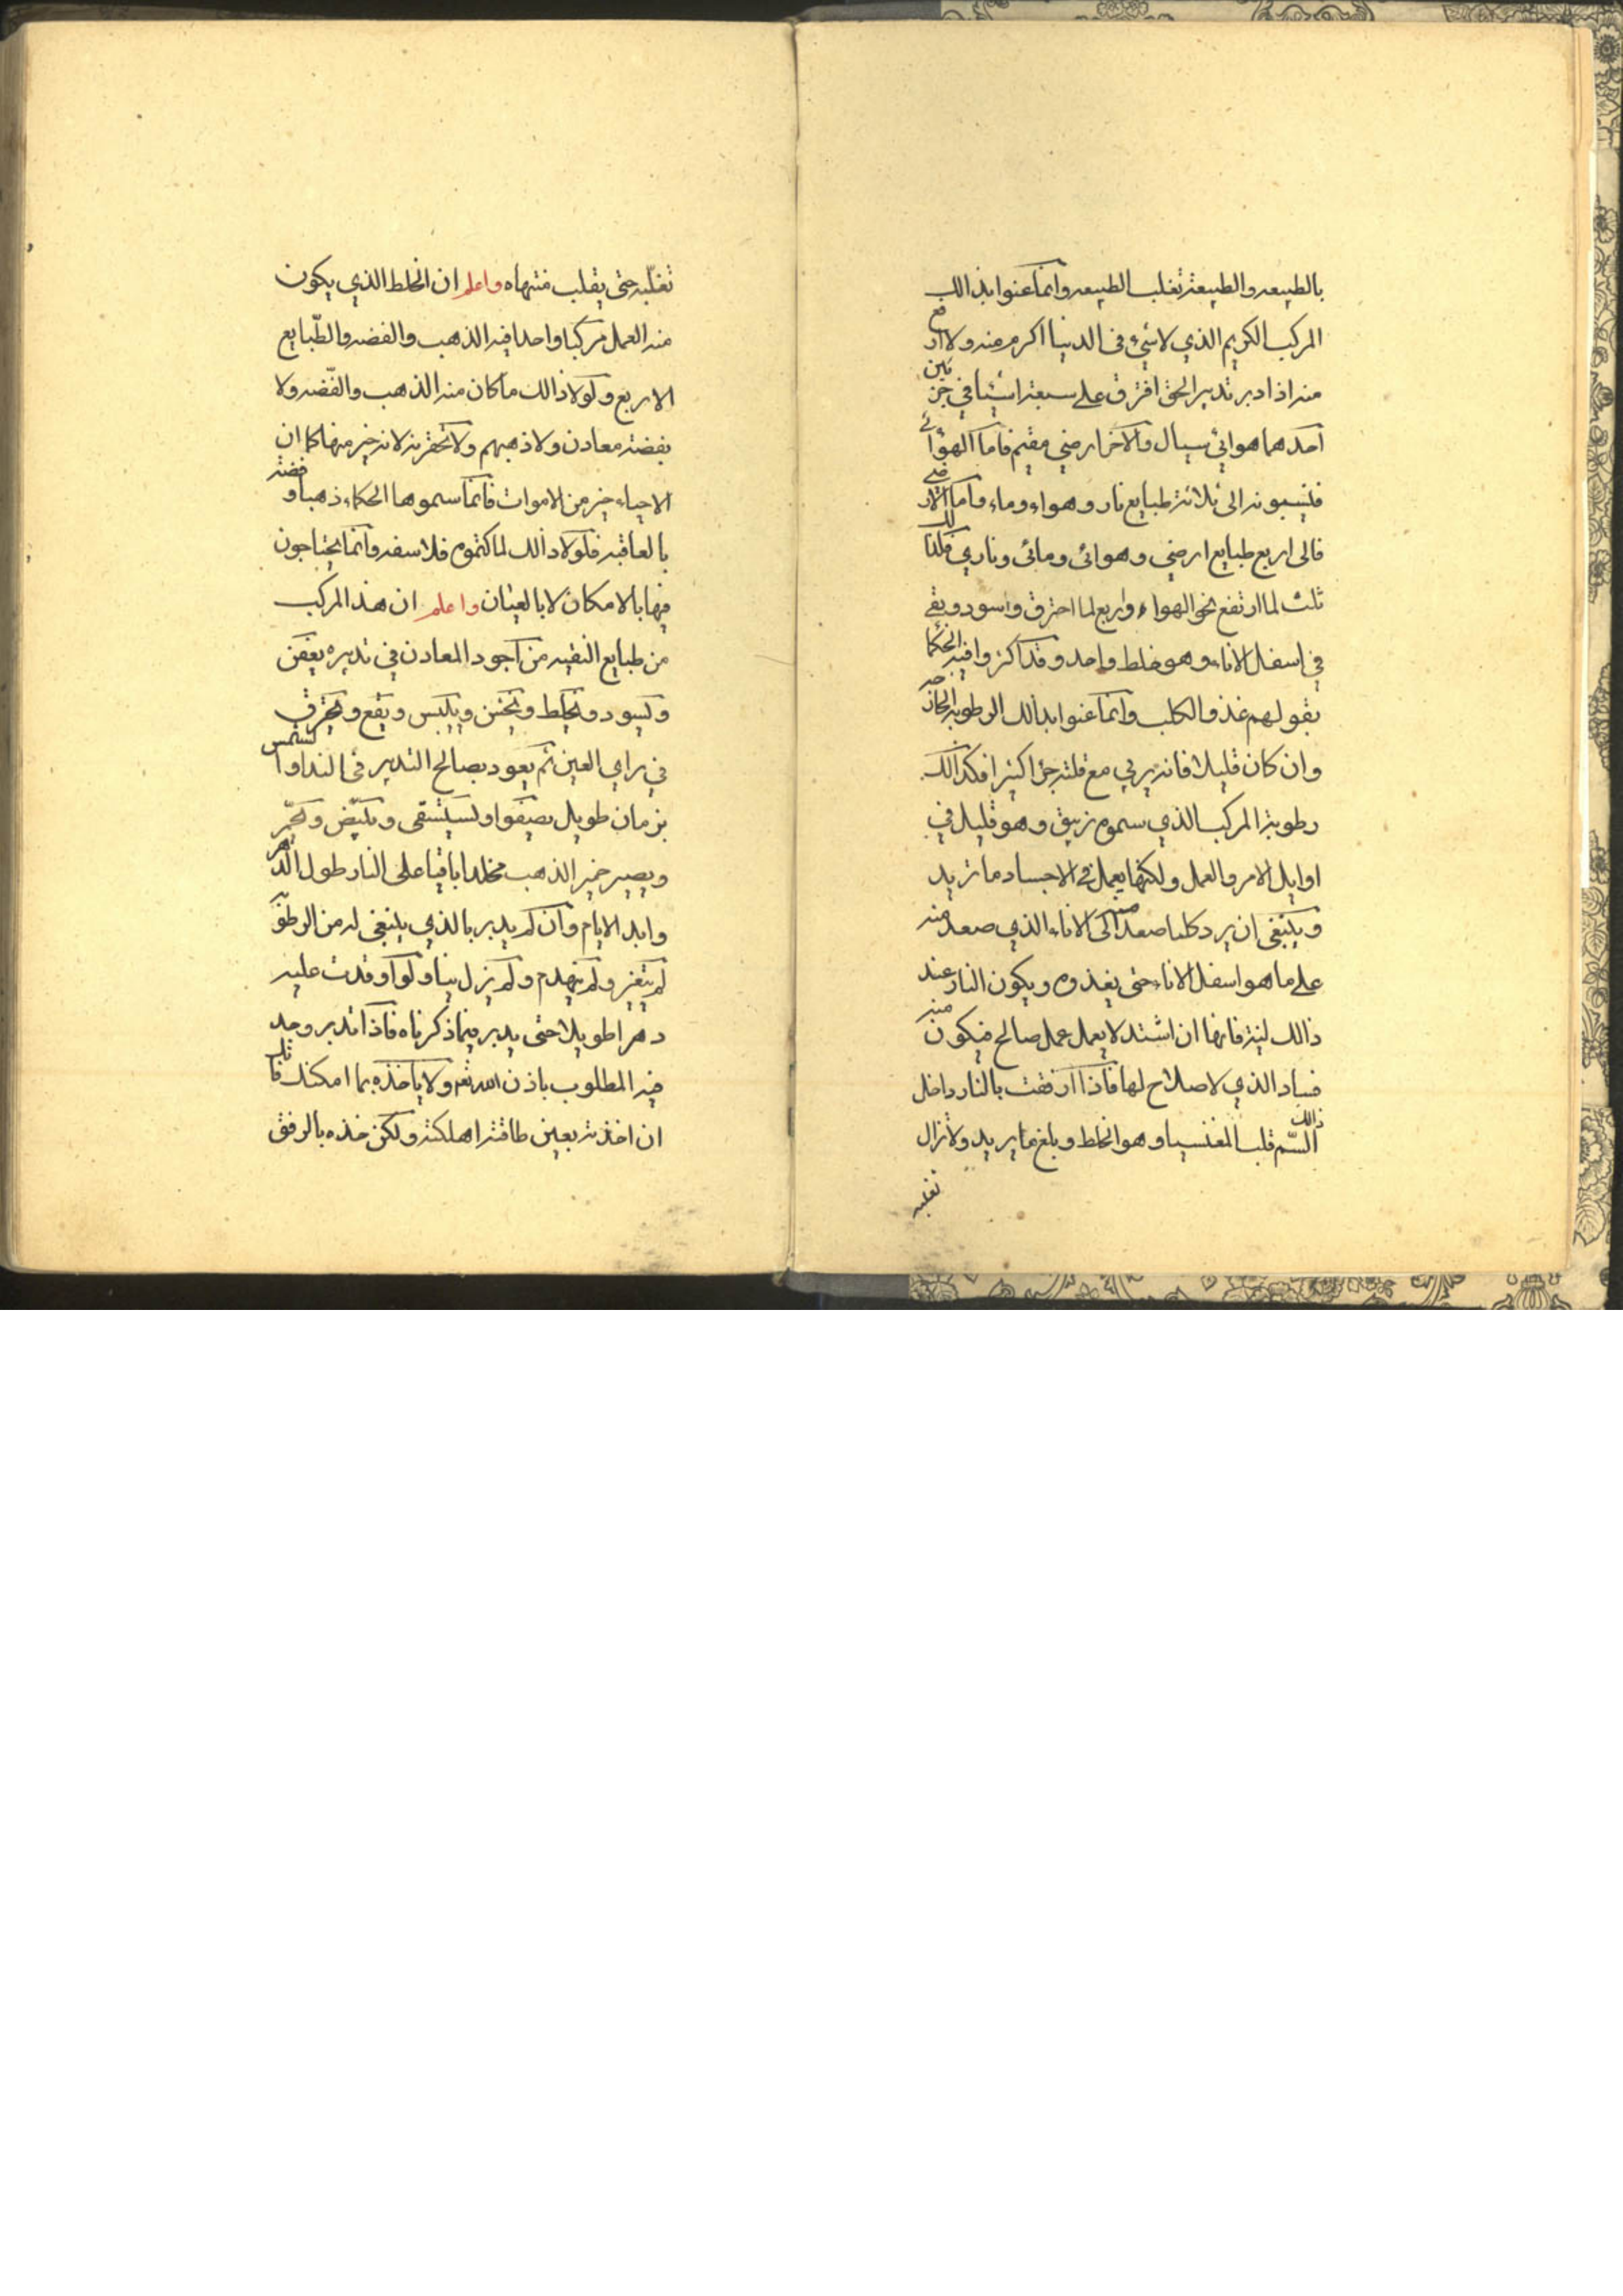 بالطبيعه والطبيعة تغلب الطبيعه وانما عنوا بذالك
المركب الكريم الذي لاشيء في الدنيا اكرم منه ولا ارفع
منه اذا دبر تدبير الحق افترق على سبعة اشيا في جزئين
احدهما هوائي سيال والاخر ارضي مقيم فاما الهوائي
فينسبونه الى ثلاثة طبايع نار وهواء وماء واما الارضي
فالى اربع طبايع ارضي وهوائي ومائي وناري فلذالك
ثلث لما ارتفع نحو الهواء واربع لما احترق واسود وبقي
في اسفل الاناء وهو خلط واحد وقد اكثروا فيه الحكما
بقولهم خذو الكلب وانما عنوا بذالك الرطوبة الحاره
وان كان قليلا فانه يربي مع قلته جزا كثيرا فكذالك
رطوبة المركب الذي سموه زيبق وهو قليل في
اوايل الامر والعمل ولكنها يعمل في الاجساد ما تريد
وينبغي ان يرد كلما صعد منه الى الاناء الذي صعد منه
على ما هو اسفل الاناء حتى يغذوه ويكون النار عند
ذالك لينة فانها ان اشتد لا يعمل عمل صالح فيكون منه
فساد الذي لا صلاح لها فاذا ارفقت بالنار داخل
ذالك السم قلب المغنسيا وهو الخلط وبلغ ما يريد ولا تزال
تغلبه
تغلبه حتى يقلب منتهاه واعلم ان الخلط الذي يكون
منه العمل مركبا واحدا فيه الذهب والفضه والطبايع
الاربع ولولا ذالك ما كان منه الذهب والفضه ولا
بفضة معادن ولا ذهبهم ولا تحقرنه لانه خير منها كما ان
الاحياء خير من الاموات فانما سموها الحكماء ذهبا وفضة
بالعاقبه فلولا ذالك لما كتموه فلاسفه وانما يحتاجون
فيها بالامكان لا بالعيان واعلم ان هذا المركب
من طبايع النقيه من اجود المعادن في تدبيره يعفن
ويسود ويخلط ويخشن وييبس ويقع ويحترق
في راي العين ثم يعود بصالح التدبير في النداو الشمس
بزمان طويل يصيفوا ويستسقي ويبيض ويحمر
ويصير خمير الذهب مخلدا باقيا على النار طول الدهر
وابد الايام وان لم يدبر بالذي ينبغي له من الرطوبة
لم يتغير ولم ينهدم ولم يزل نيا ولو اوقدت عليه
دهرا طويلا حتى يدبر فيما ذكرناه فاذا تدبر وجد
فيه المطلوب باذن الله تعم ولا ياخذه بما امكنك قاتله
ان اخذته بعين طاقته اهلكته ولكن خذه بالرفق